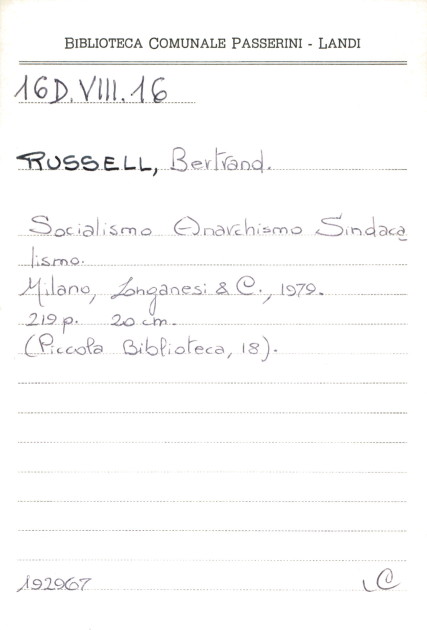 BIBLIOTECA COMUNALE PASSERINI - LANDI
16D.VIII.16
RUSSELL, Bertrand.
Socialismo Anarchismo Sindaca
lismo.
Milano, Longanesi & C., 1979.
219 p. 20 cm.
(Piccola Biblioteca, 18).
192967